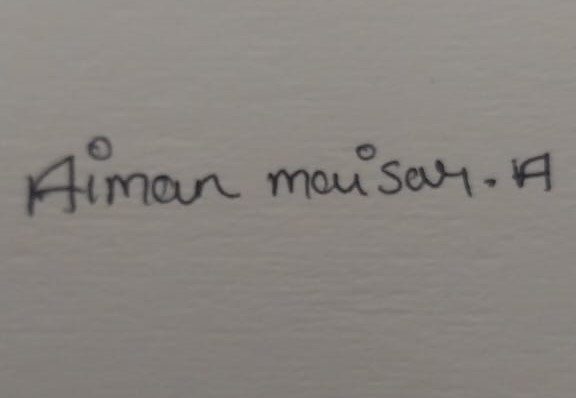 Aiman maisar. A